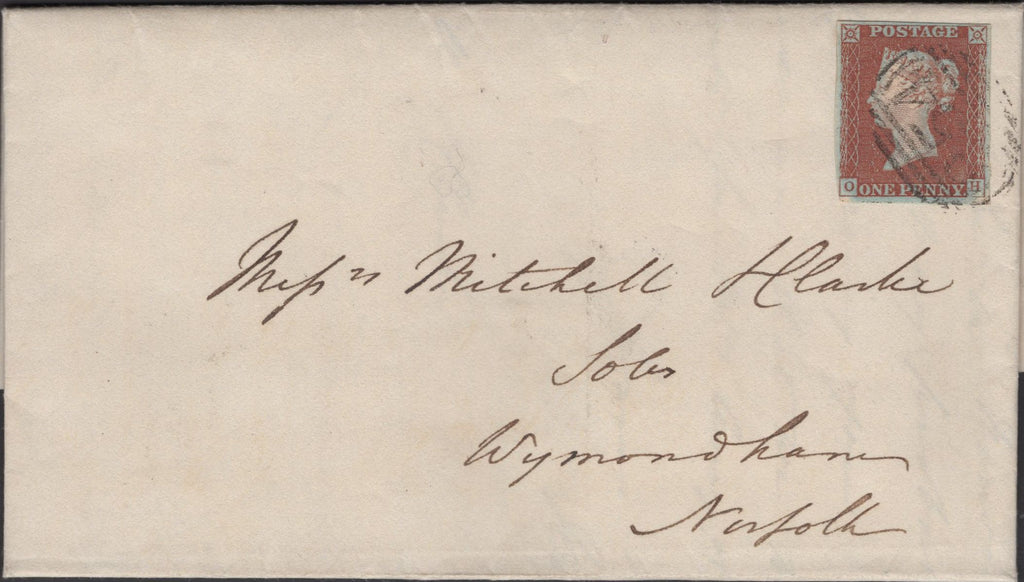 POSTAGE
O ONE PENNY H
Messrs Mitchell & Clarke
Solrs
Wymondham
Norfolk